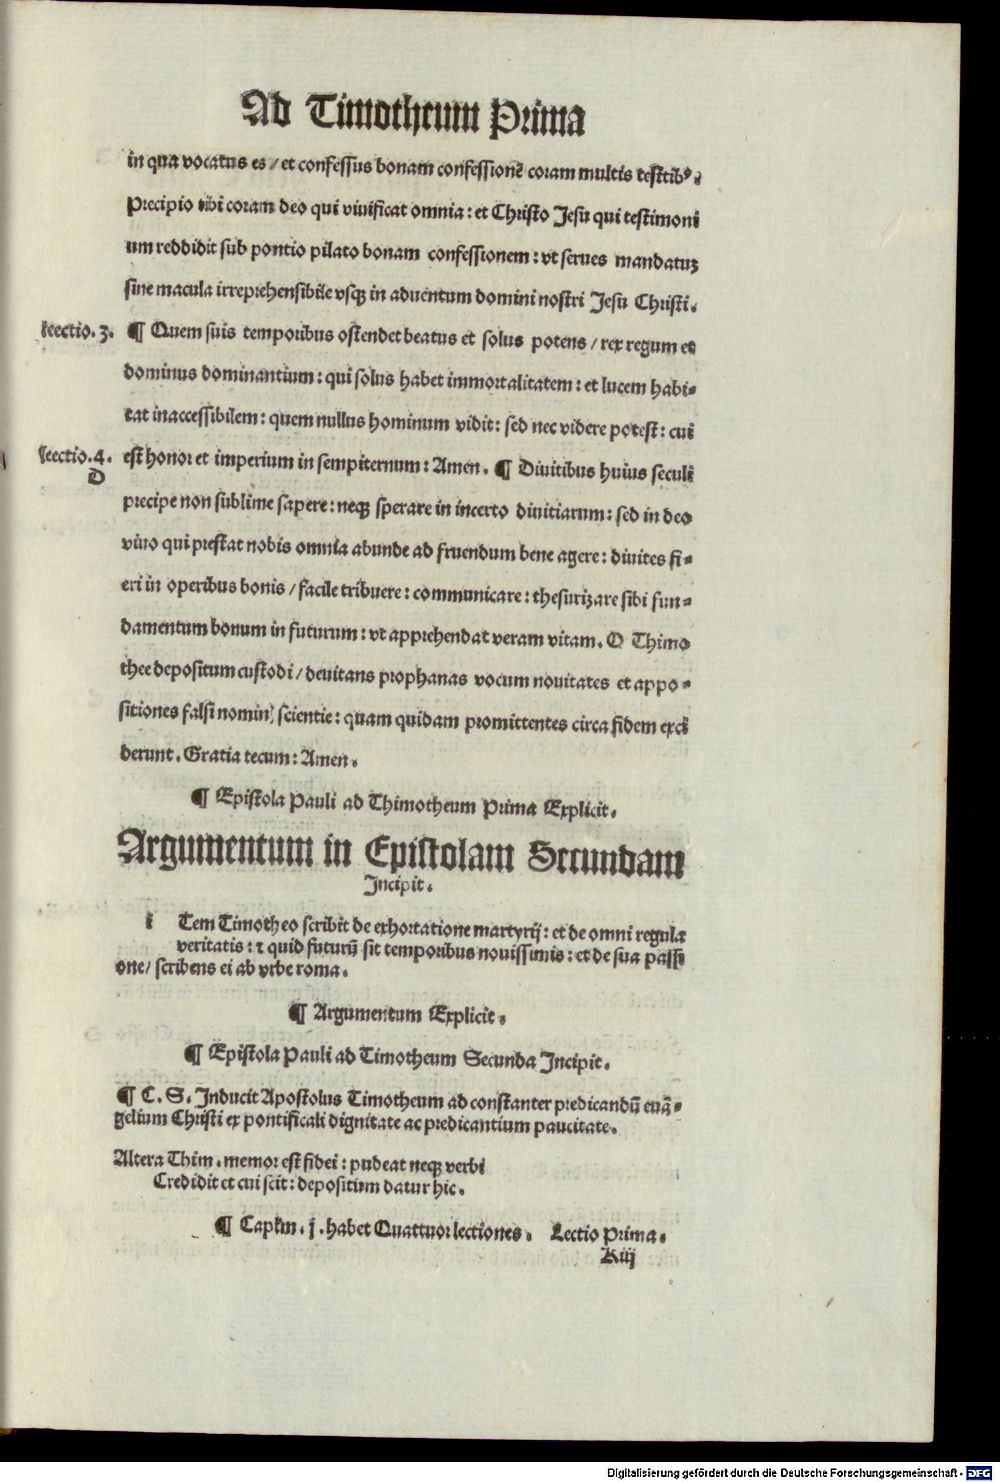 Ad Timotheum Prima
in qua vocatus es / et confessus bonam confessionē coram multis testibꝰ.
Precipio tibi coram deo qui viuificat omnia : et Christo Jesu qui testimoni
um reddidit sub pontio pilato bonam confessionem : vt serues mandatuz
sine macula irreprehensibile vsqꝫ in aduentum domini nostri Jesu Christi.
Lectio. 3. ¶ Quem suis temporibus ostendet beatus et solus potens / rex regum et
dominus dominantium : qui solus habet immortalitatem : et lucem habi-
tat inaccessibilem : quem nullus hominum vidit : sed nec videre potest : cui
Lectio. 4. est honor et imperium in sempiternum : Amen. ¶ Diuitibus huius seculi
D
precipe non sublime sapere : neqꝫ sperare in incerto diuitiarum : sed in deo
viuo qui prestat nobis omnia abunde ad fruendum bene agere : diuites fi-
eri in operibus bonis / facile tribuere : communicare : thesurizare sibi fun-
damentum bonum in futurum : vt apprehendat veram vitam. O Thimo
thee depositum custodi / deuitans prophanas vocum nouitates et appo-
sitiones falsi nominꝭ scientie : quam quidam promittentes circa fidem exci
derunt. Gratia tecum : Amen.
¶ Epistola Pauli ad Thimotheum Prima Explicit.
Argumentum in Epistolam Secundam
Incipit.
i Tem Timotheo scribit de exhortatione martyrij : et de omni regula
veritatis : ⁊ quid futurū sit temporibus nouissimis : et de sua passi
one / scribens ei ab vrbe roma.
¶ Argumentum Explicit.
¶ Epistola Pauli ad Timotheum Secunda Incipit.
¶ C. S. Inducit Apostolus Timotheum ad constanter predicandū euā-
gelium Christi ex pontificali dignitate ac predicantium paucitate.
Altera Thim. memor est fidei : pudeat neqꝫ verbi
Credidit et cui scit : depositum datur hic.
¶ Capłm. j. habet Quattuor lectiones. Lectio Prima.
K iij
Digitalisierung gefördert durch die Deutsche Forschungsgemeinschaft - DFG